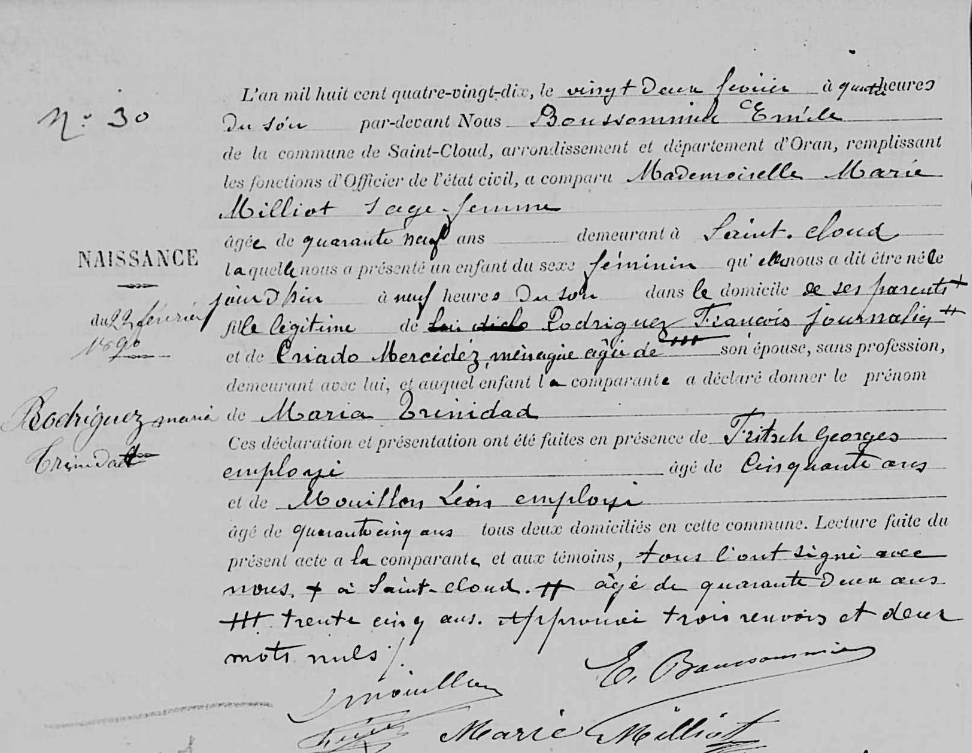 N° 30
L'an mil huit cent quatre-vingt-dix, le vingt deux février à quatre heures
du soir par-devant Nous Boussommier Emile
de la commune de Saint-Cloud, arrondissement et département d'Oran, remplissant
les fonctions d'Officier de l'état civil, a comparu Mademoiselle Marie
Milliot sage-femme
âgée de quarante neuf ans demeurant à Saint-Cloud
NAISSANCE
laquelle nous a présenté un enfant du sexe féminin qu'elle nous a dit être né le
jour d'hier à neuf heures du soir dans le domicile de ses parents +
du 22 février
1890
fille légitime de Rodriguez François journalier ++
et de Criado Mercédéz, ménagère âgée de +++ son épouse, sans profession,
demeurant avec lui, et auquel enfant la comparante a déclaré donner le prénom
Rodriguez Maria
Trinidad
de Maria Trinidad
Ces déclaration et présentation ont été faites en présence de Fritsch Georges
employé âgé de Cinquante ans
et de Mouillon Léon employé
âgé de quarante cinq ans tous deux domiciliés en cette commune. Lecture faite du
présent acte a la comparante et aux témoins, tous l'ont signé avec
nous. + à Saint-Cloud. ++ âgé de quarante deux ans
+++ trente cinq ans. Approuvé trois renvois et deux
mots nuls /.
Mouillon E. Boussommier
Marie Milliot